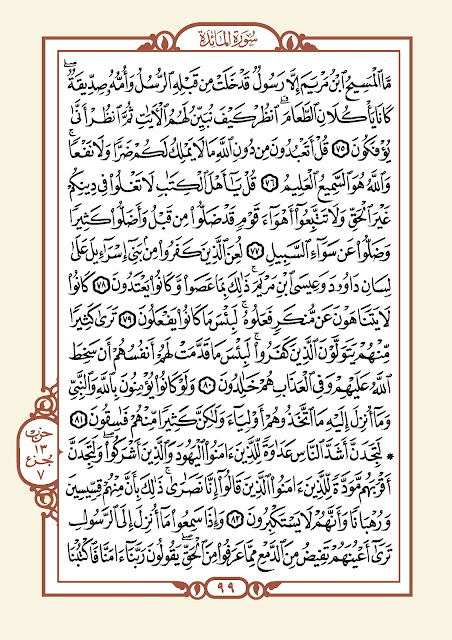 سُورَةُ الْمَائِدَة
مَّا ٱلْمَسِيحُ ٱبْنُ مَرْيَمَ إِلَّا رَسُولٌ قَدْ خَلَتْ مِن قَبْلِهِ ٱلرُّسُلُ وَأُمُّهُۥ صِدِّيقَةٌۖ
كَانَا يَأْكُلَانِ ٱلطَّعَامَۗ ٱنظُرْ كَيْفَ نُبَيِّنُ لَهُمُ ٱلْءَايَٰتِ ثُمَّ ٱنظُرْ أَنَّىٰ
يُؤْفَكُونَ ٧٥ قُلْ أَتَعْبُدُونَ مِن دُونِ ٱللَّهِ مَا لَا يَمْلِكُ لَكُمْ ضَرًّا وَلَا نَفْعًاۚ
وَٱللَّهُ هُوَ ٱلسَّمِيعُ ٱلْعَلِيمُ ٧٦ قُلْ يَٰٓأَهْلَ ٱلْكِتَٰبِ لَا تَغْلُوا۟ فِى دِينِكُمْ
غَيْرَ ٱلْحَقِّ وَلَا تَتَّبِعُوٓا۟ أَهْوَآءَ قَوْمٍ قَدْ ضَلُّوا۟ مِن قَبْلُ وَأَضَلُّوا۟ كَثِيرًا
وَضَلُّوا۟ عَن سَوَآءِ ٱلسَّبِيلِ ٧٧ لُعِنَ ٱلَّذِينَ كَفَرُوا۟ مِنۢ بَنِىٓ إِسْرَٰٓءِيلَ عَلَىٰ
لِسَانِ دَاوُۥدَ وَعِيسَى ٱبْنِ مَرْيَمَۚ ذَٰلِكَ بِمَا عَصَوا۟ وَّكَانُوا۟ يَعْتَدُونَ ٧٨ كَانُوا۟
لَا يَتَنَاهَوْنَ عَن مُّنكَرٍ فَعَلُوهُۚ لَبِئْسَ مَا كَانُوا۟ يَفْعَلُونَ ٧٩ تَرَىٰ كَثِيرًا
مِّنْهُمْ يَتَوَلَّوْنَ ٱلَّذِينَ كَفَرُوا۟ۚ لَبِئْسَ مَا قَدَّمَتْ لَهُمْ أَنفُسُهُمْ أَن سَخِطَ
ٱللَّهُ عَلَيْهِمْ وَفِى ٱلْعَذَابِ هُمْ خَٰلِدُونَ ٨٠ وَلَوْ كَانُوا۟ يُؤْمِنُونَ بِٱللَّهِ وَٱلنَّبِىِّ
وَمَآ أُنزِلَ إِلَيْهِ مَا ٱتَّخَذُوهُمْ أَوْلِيَآءَ وَلَٰكِنَّ كَثِيرًا مِّنْهُمْ فَٰسِقُونَ ٨١
۞ لَتَجِدَنَّ أَشَدَّ ٱلنَّاسِ عَدَٰوَةً لِّلَّذِينَ ءَامَنُوا۟ ٱلْيَهُودَ وَٱلَّذِينَ أَشْرَكُوا۟ۖ وَلَتَجِدَنَّ
أَقْرَبَهُم مَّوَدَّةً لِّلَّذِينَ ءَامَنُوا۟ ٱلَّذِينَ قَالُوٓا۟ إِنَّا نَصَٰرَىٰۚ ذَٰلِكَ بِأَنَّ مِنْهُمْ قِسِّيسِينَ
وَرُهْبَانًا وَأَنَّهُمْ لَا يَسْتَكْبِرُونَ ٨٢ وَإِذَا سَمِعُوا۟ مَآ أُنزِلَ إِلَى ٱلرَّسُولِ
تَرَىٰٓ أَعْيُنَهُمْ تَفِيضُ مِنَ ٱلدَّمْعِ مِمَّا عَرَفُوا۟ مِنَ ٱلْحَقِّۖ يَقُولُونَ رَبَّنَآ ءَامَنَّا فَٱكْتُبْنَا
حزب
١٣
جزء
٧
٩٩